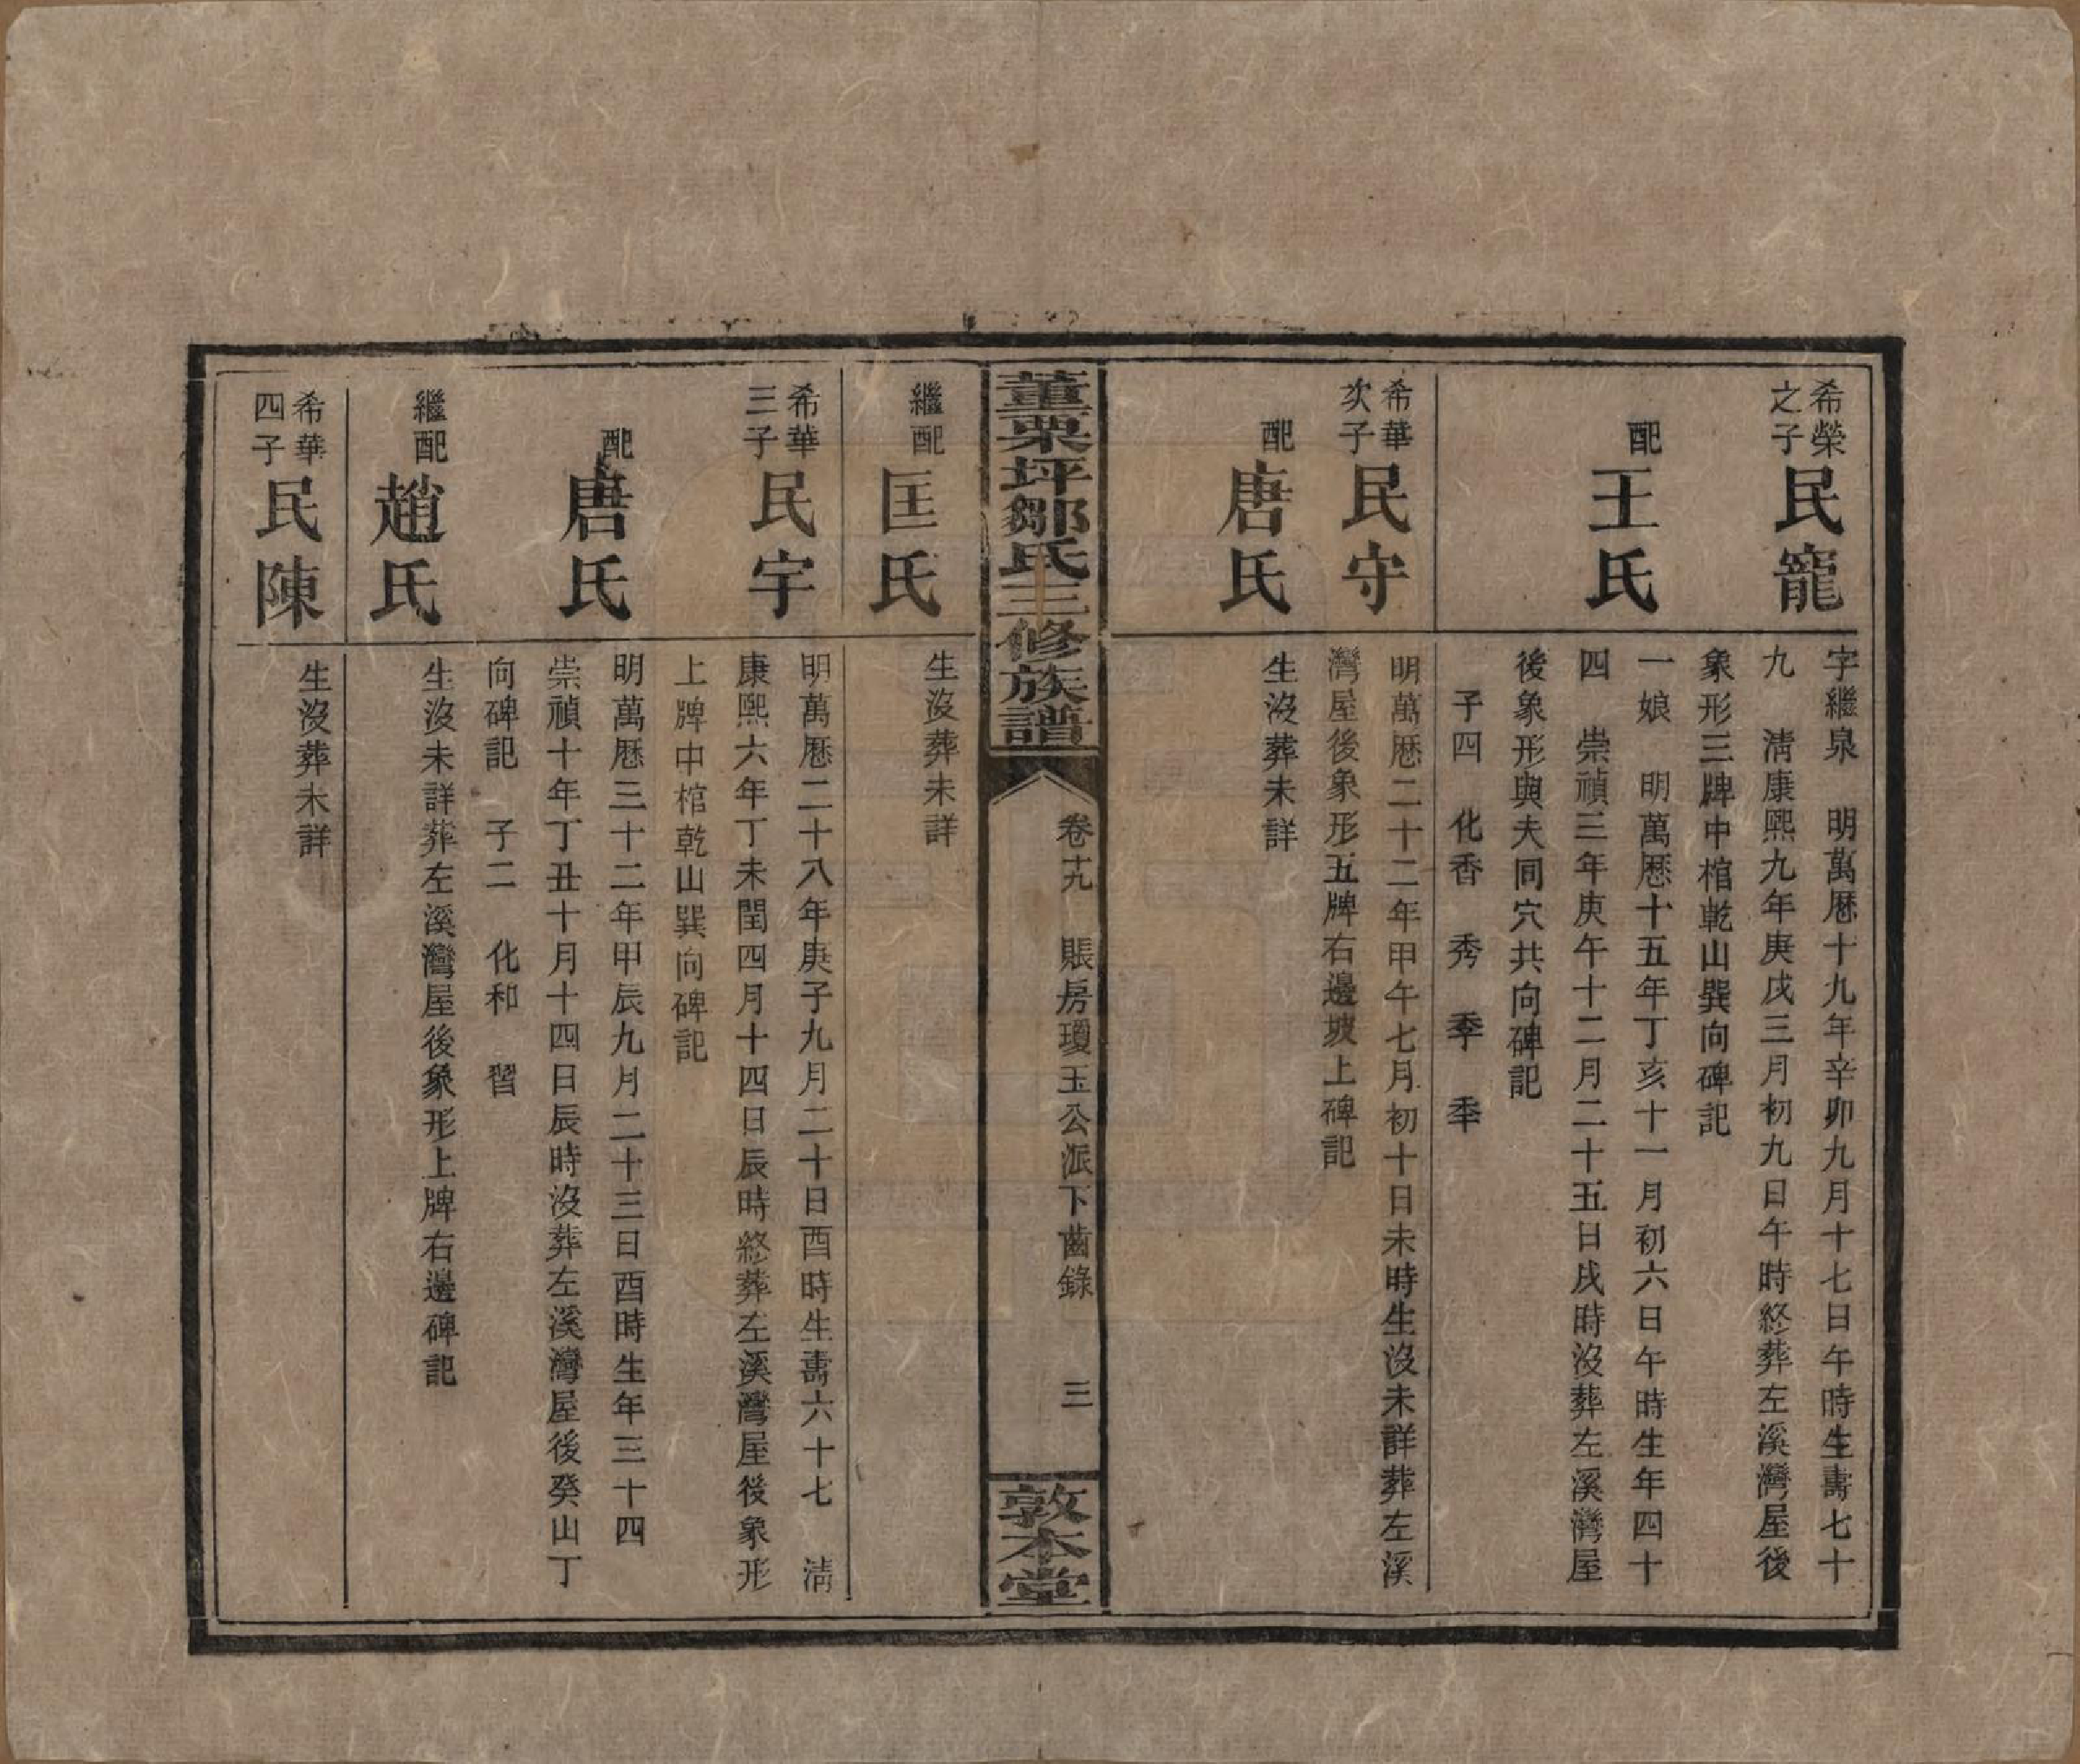 希榮
之子
民寵
字繼泉　明萬曆十九年辛卯九月十七日午時生壽七十
九　清康熙九年庚戌三月初九日午時終葬左溪灣屋後
象形三牌中棺乾山巽向碑記
配
王氏
一娘　明萬曆十五年丁亥十一月初六日午時生年四十
四　崇禎三年庚午十二月二十五日戌時沒葬左溪灣屋
後象形與夫同穴共向碑記
子四　化香　秀　季　秊
希華
次子
民守
明萬曆二十二年甲午七月初十日未時生沒未詳葬左溪
灣屋後象形五牌右邊坡上碑記
配
唐氏
生沒葬未詳
董栗坪鄒氏三修族譜
卷十九　賬房瓊玉公派下齒錄　三
敦本堂
繼配
匡氏
生沒葬未詳
希華
三子
民宇
明萬曆二十八年庚子九月二十日酉時生壽六十七　清
康熙六年丁未閏四月十四日辰時終葬左溪灣屋後象形
上牌中棺乾山巽向碑記
配
唐氏
明萬曆三十二年甲辰九月二十三日酉時生年三十四
崇禎十年丁丑十月十四日辰時沒葬左溪灣屋後癸山丁
向碑記　子二　化和　習
繼配
趙氏
生沒未詳葬左溪灣屋後象形上牌右邊碑記
希華
四子
民陳
生沒葬未詳